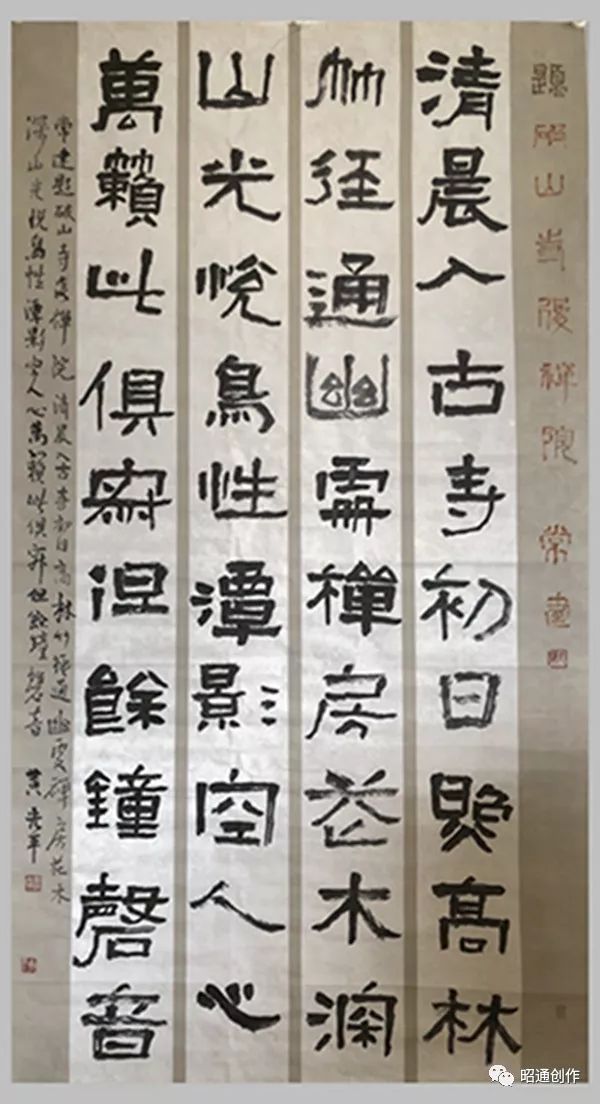 題破山寺後禅院 常建
清晨入古寺初日照高林
竹径通幽處禪房花木深
山光悅鳥性潭影空人心
萬籟此俱寂但餘鐘磬音
常建题破山寺後禅院 清晨入古寺初日高林竹径通幽處禅房花木
深山光悦鳥性潭影空人心萬籟此俱寂但餘鐘磬音 黄平
昭通创作